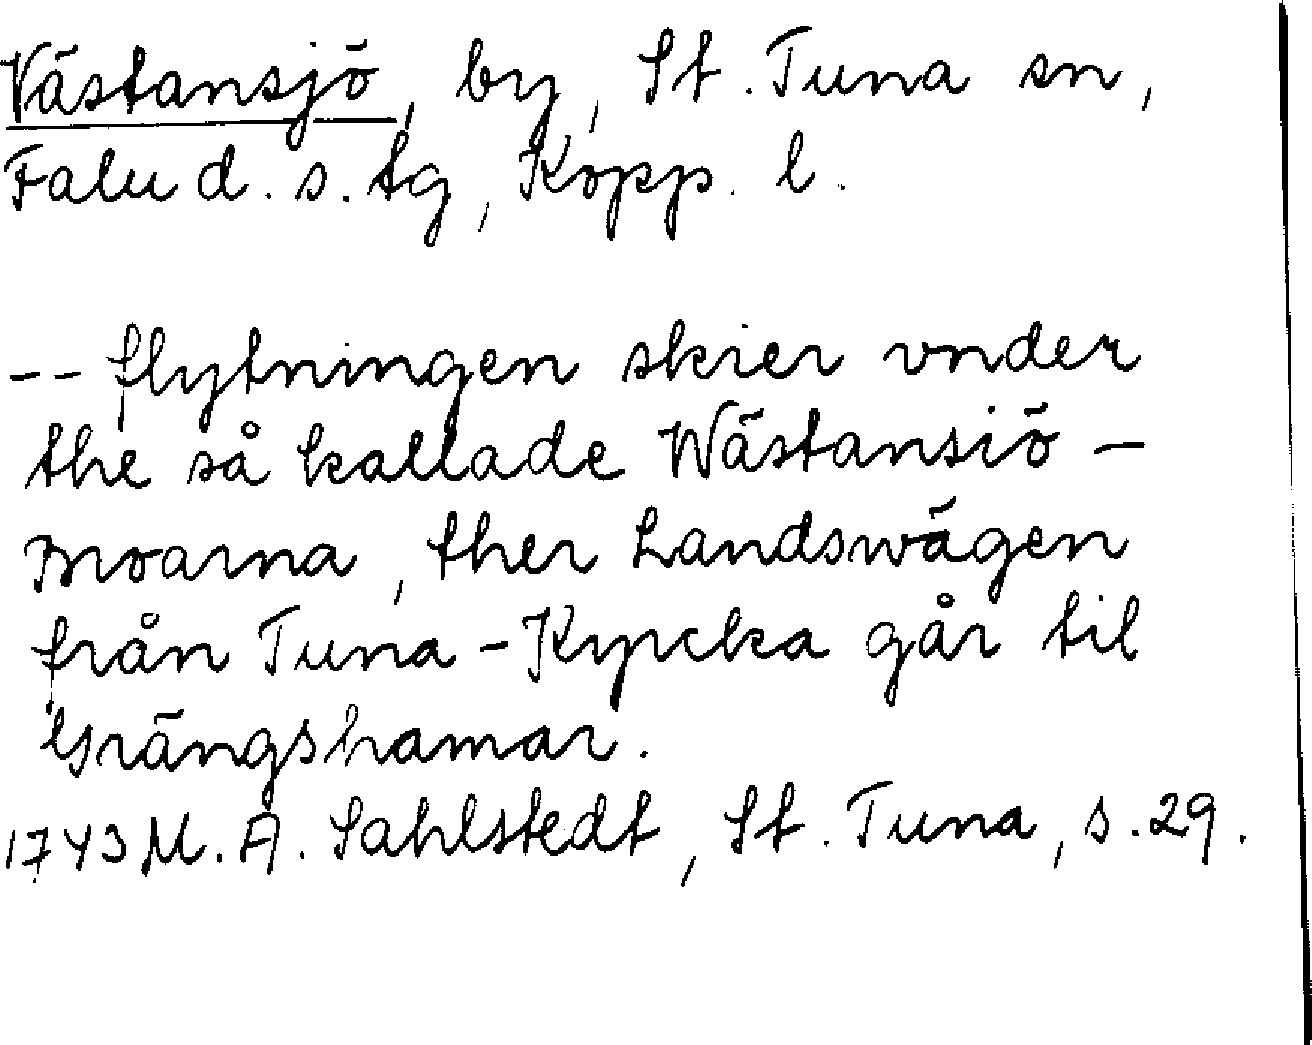 Västansjö, by, St. Tuna sn,
Falu d. s. tg, Kopp. l.
-- flytningen skier vnder
the så kallade Wästansiö-
moarna, ther Landswägen
från Tuna-Kyrcka går til
Grängshamar.
1743 M. A. Sahlstedt, St. Tuna, s. 29.